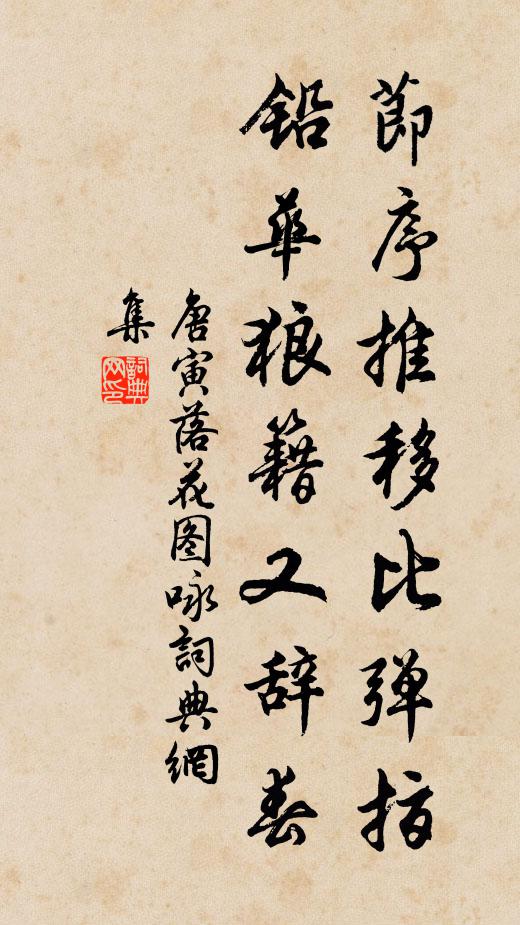 節序推移比弹指
鉛華狼籍又辞春
唐寅落花图咏詞典網
集
詞典网印